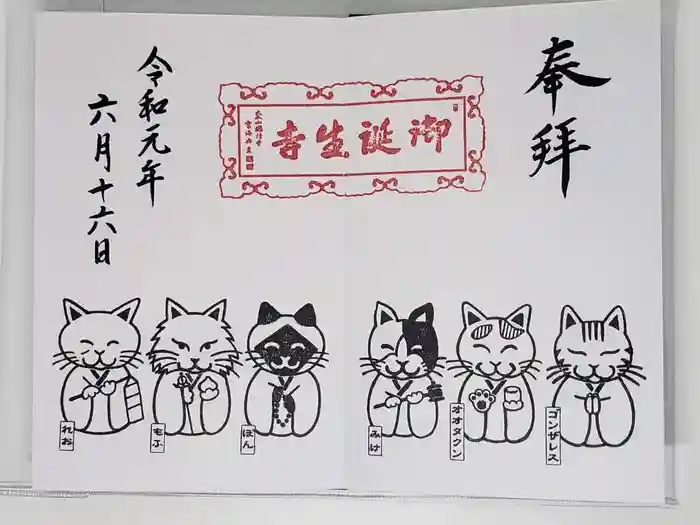 奉拝
御誕生寺
令和元年
六月十六日
れお
もふ
ほん
みけ
オオタクン
ゴンザレス